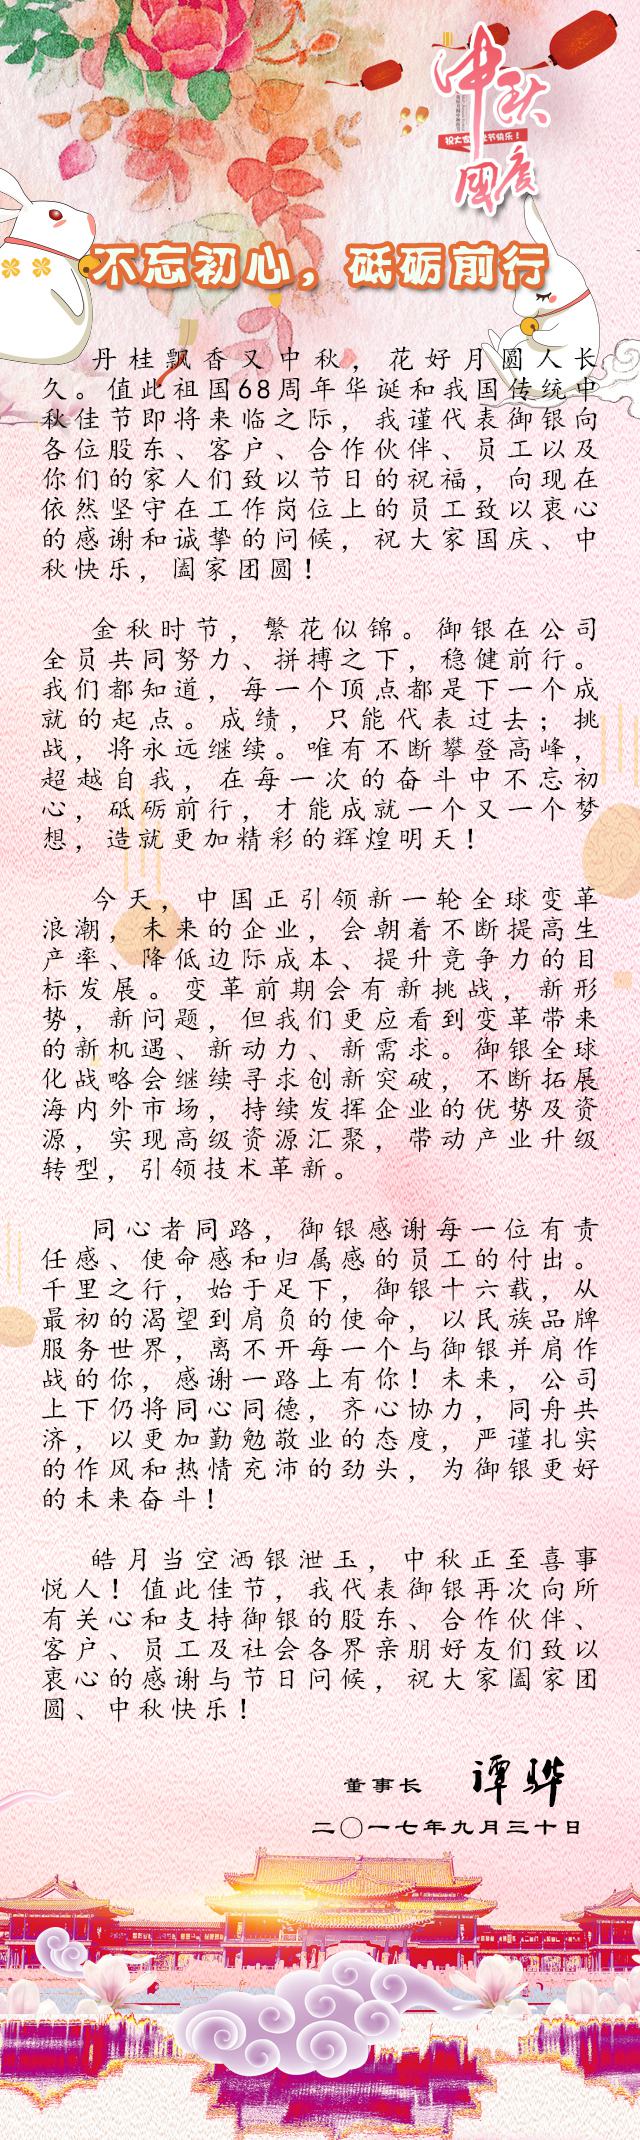 中秋
国庆
不忘初心，砥砺前行
丹桂飘香又中秋，花好月圆人长
久。值此祖国68周年华诞和我国传统中
秋佳节即将来临之际，我谨代表御银向
各位股东、客户、合作伙伴、员工以及
你们的家人们致以节日的祝福，向现在
依然坚守在工作岗位上的员工致以衷心
的感谢和诚挚的问候，祝大家国庆、中
秋快乐，阖家团圆！
金秋时节，繁花似锦。御银在公司
全员共同努力、拼搏之下，稳健前行。
我们都知道，每一个顶点都是下一个成
就的起点。成绩，只能代表过去；挑
战，将永远继续。唯有不断攀登高峰，
超越自我，在每一次的奋斗中不忘初
心，砥砺前行，才能成就一个又一个梦
想，造就更加精彩的辉煌明天！
今天，中国正引领新一轮全球变革
浪潮，未来的企业，会朝着不断提高生
产率、降低边际成本、提升竞争力的目
标发展。变革前期会有新挑战，新形
势，新问题，但我们更应看到变革带来
的新机遇、新动力、新需求。御银全球
化战略会继续寻求创新突破，不断拓展
海内外市场，持续发挥企业的优势及资
源，实现高级资源汇聚，带动产业升级
转型，引领技术革新。
同心者同路，御银感谢每一位有责
任感、使命感和归属感的员工的付出。
千里之行，始于足下，御银十六载，从
最初的渴望到肩负的使命，以民族品牌
服务世界，离不开每一个与御银并肩作
战的你，感谢一路上有你！未来，公司
上下仍将同心同德，齐心协力，同舟共
济，以更加勤勉敬业的态度，严谨扎实
的作风和热情充沛的劲头，为御银更好
的未来奋斗！
皓月当空洒银泄玉，中秋正至喜事
悦人！值此佳节，我代表御银再次向所
有关心和支持御银的股东、合作伙伴、
客户、员工及社会各界亲朋好友们致以
衷心的感谢与节日问候，祝大家阖家团
圆、中秋快乐！
董事长 谭骅
二〇一七年九月三十日